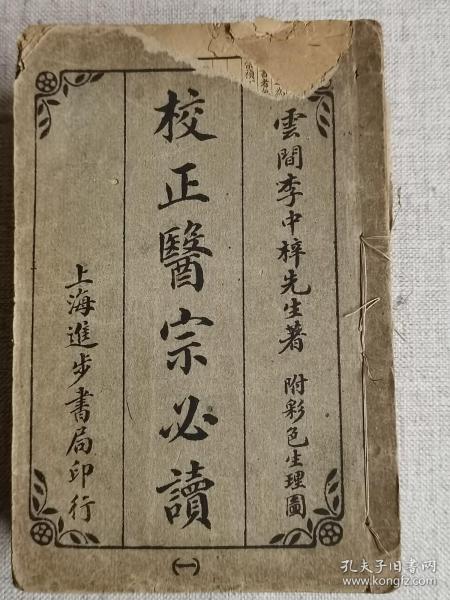 雲間李中梓先生著 附彩色生理圖
校正醫宗必讀
(一)
上海進步書局印行
孔夫子旧书网
www.kongfz.com